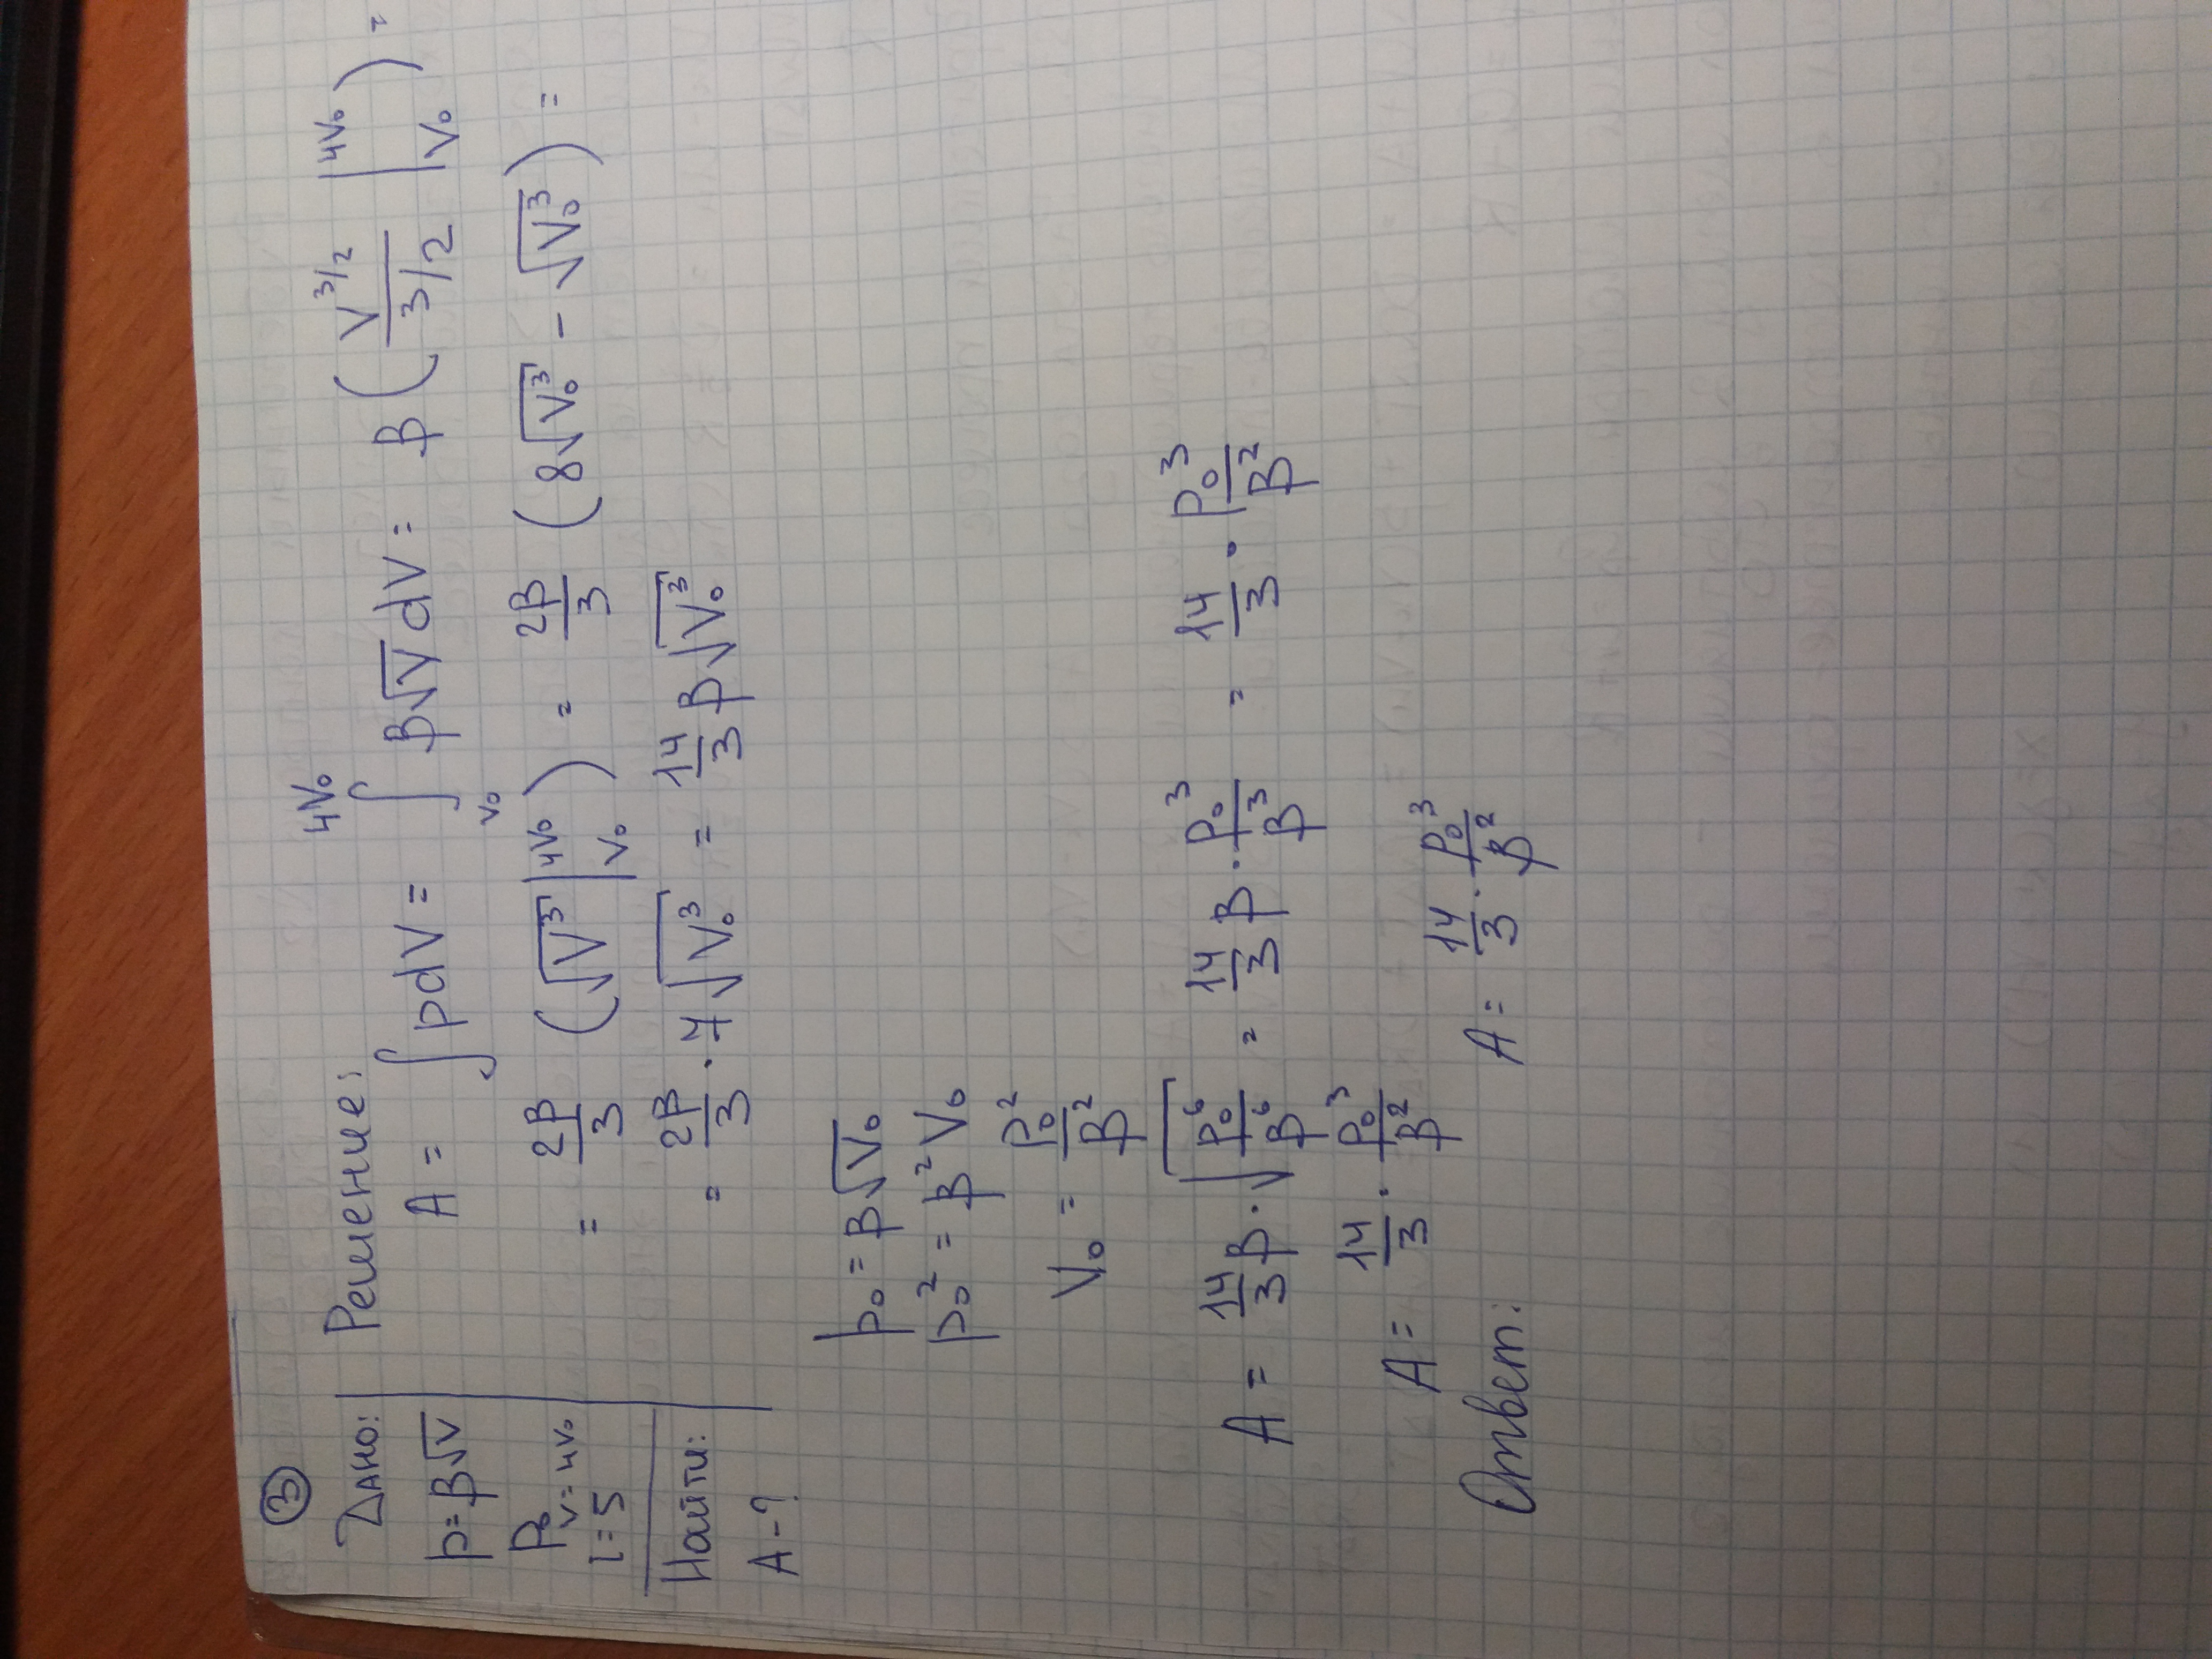 ③
Дано:
p=β√V
P₀
V=4V₀
i=5
Найти:
A-?
Решение:
A = ∫pdV = ∫_{V₀}^{4V₀} β√V dV = β(V^{3/2}/(3/2) |_{V₀}^{4V₀}) =
= 2β/3 (√V³ |_{V₀}^{4V₀}) = 2β/3 (8√V₀³ - √V₀³) =
= 2β/3 · 7√V₀³ = 14/3 β√V₀³
p₀ = β√V₀
p₀² = β²V₀
V₀ = P₀²/β²
A = 14/3 β · √(P₀⁶/β⁶) = 14/3 β · P₀³/β³ = 14/3 · P₀³/β²
A = 14/3 · P₀³/β²
Ответ: A = 14/3 · P₀³/β²